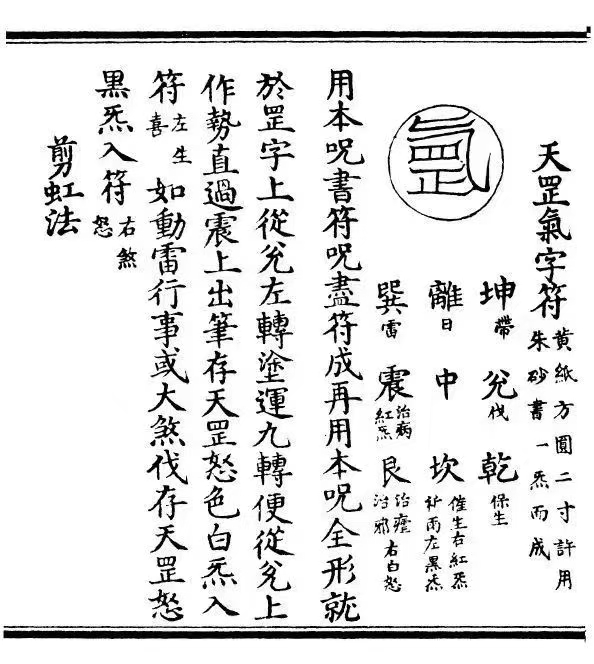 天罡氣字符 黃紙方圓二寸許用朱砂書一炁而成
坤帶 兌伐 乾保生
離日 中 坎催生右紅炁祈雨左黑炁
巽雷 震治病紅炁 艮治瘧治邪右白怒
用本呪書符呪盡符成再用本呪全形就
於罡字上從兌左轉塗運九轉便從兌上
作勢直過震上出筆存天罡怒色白炁入
符左生喜如動雷行事或大煞伐存天罡怒
黑炁入符右煞怒
剪虹法